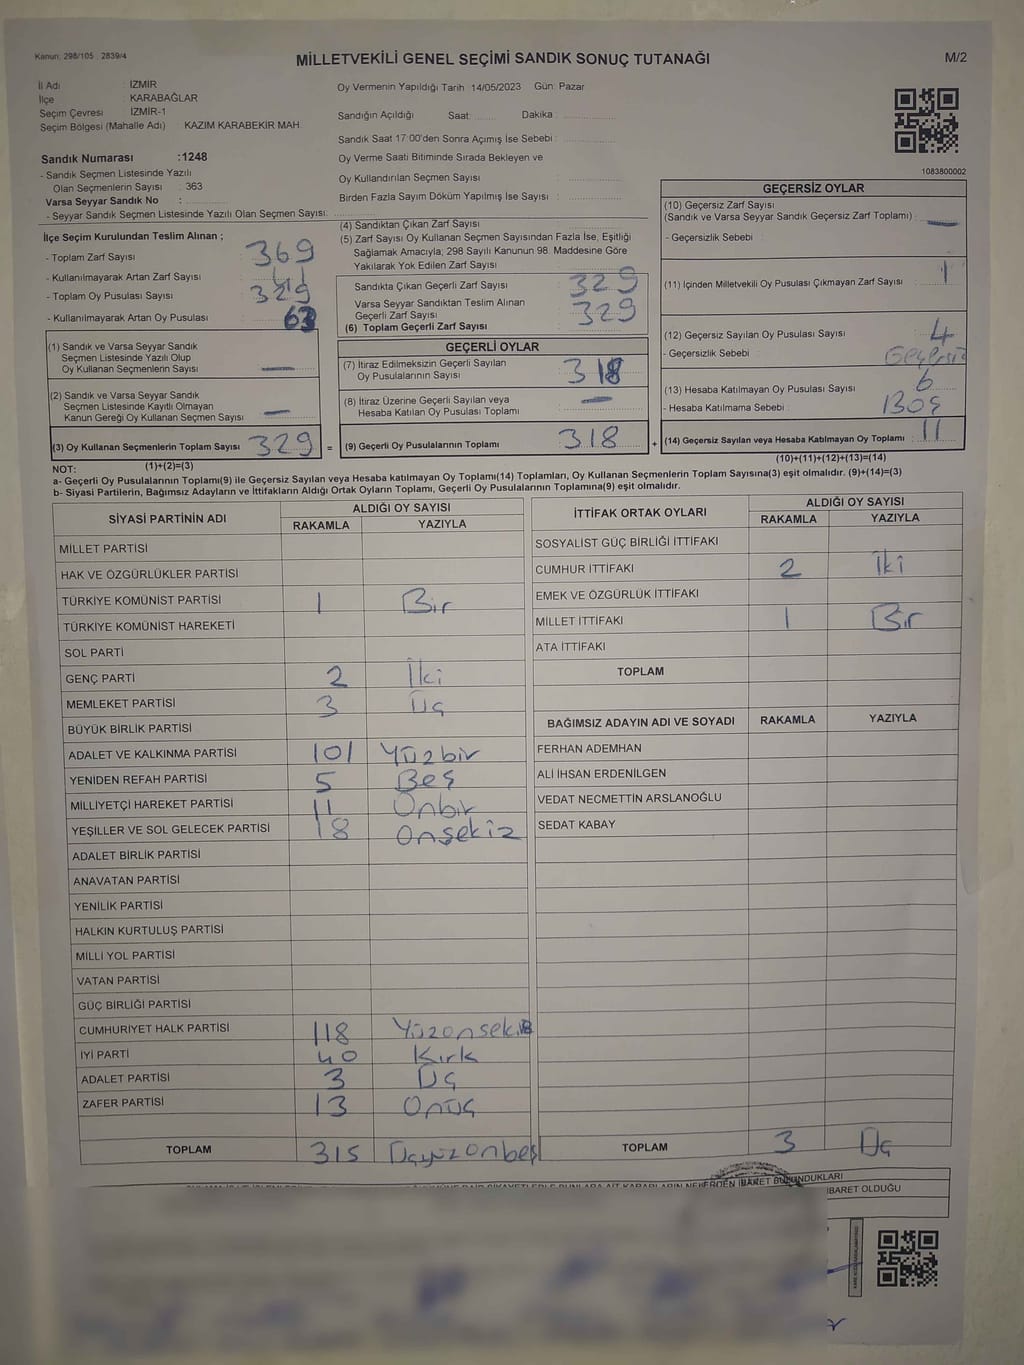 Kanun: 298/105 , 2839/4
MİLLETVEKİLİ GENEL SEÇİMİ SANDIK SONUÇ TUTANAĞI
M/2
İl Adı : İZMİR
İlçe KARABAĞLAR
Seçim Çevresi İZMİR-1
Seçim Bölgesi (Mahalle Adı) : KAZIM KARABEKİR MAH.
Sandık Numarası :1248
- Sandık Seçmen Listesinde Yazılı
Olan Seçmenlerin Sayısı : 363
Varsa Seyyar Sandık No :
- Seyyar Sandık Seçmen Listesinde Yazılı Olan Seçmen Sayısı:
Oy Vermenin Yapıldığı Tarih 14/05/2023 Gün: Pazar
Sandığın Açıldığı Saat: Dakika :
Sandık Saat 17:00'den Sonra Açımış İse Sebebi :
Oy Verme Saati Bitiminde Sırada Bekleyen ve
Oy Kullandırılan Seçmen Sayısı :
Birden Fazla Sayım Döküm Yapılmış İse Sayısı :
1083800002
İlçe Seçim Kurulundan Teslim Alınan ;
- Toplam Zarf Sayısı 369
- Kullanılmayarak Artan Zarf Sayısı
- Toplam Oy Pusulası Sayısı
- Kullanılmayarak Artan Oy Pusulası 63
(1) Sandık ve Varsa Seyyar Sandık
Seçmen Listesinde Yazılı Olup
Oy Kullanan Seçmenlerin Sayısı —
(2) Sandık ve Varsa Seyyar Sandık
Seçmen Listesinde Kayıtlı Olmayan
Kanun Gereği Oy Kullanan Seçmen Sayısı —
(3) Oy Kullanan Seçmenlerin Toplam Sayısı 329 =
(1)+(2)=(3)
(4) Sandıktan Çıkan Zarf Sayısı
(5) Zarf Sayısı Oy Kullanan Seçmen Sayısından Fazla İse, Eşitliği
Sağlamak Amacıyla; 298 Sayılı Kanunun 98. Maddesine Göre
Yakılarak Yok Edilen Zarf Sayısı
Sandıkta Çıkan Geçerli Zarf Sayısı : 329
Varsa Seyyar Sandıktan Teslim Alınan
Geçerli Zarf Sayısı : 329
(6) Toplam Geçerli Zarf Sayısı
GEÇERLİ OYLAR
(7) İtiraz Edilmeksizin Geçerli Sayılan
Oy Pusulalarının Sayısı : 318
(8) İtiraz Üzerine Geçerli Sayılan veya
Hesaba Katılan Oy Pusulası Toplamı : —
(9) Geçerli Oy Pusulalarının Toplamı : 318 +
GEÇERSİZ OYLAR
(10) Geçersiz Zarf Sayısı
(Sandık ve Varsa Seyyar Sandık Geçersiz Zarf Toplamı) : —
- Geçersizlik Sebebi :
(11) İçinden Milletvekili Oy Pusulası Çıkmayan Zarf Sayısı : 1
(12) Geçersiz Sayılan Oy Pusulası Sayısı : 4
- Geçersizlik Sebebi : Geçersiz
(13) Hesaba Katılmayan Oy Pusulası Sayısı : 6
- Hesaba Katılmama Sebebi : Boş
(14) Geçersiz Sayılan veya Hesaba Katılmayan Oy Toplamı : 11
(10)+(11)+(12)+(13)=(14)
NOT:
a- Geçerli Oy Pusulalarının Toplamı(9) ile Geçersiz Sayılan veya Hesaba katılmayan Oy Toplamı(14) Toplamları, Oy Kullanan Seçmenlerin Toplam Sayısına(3) eşit olmalıdır. (9)+(14)=(3)
b- Siyasi Partilerin, Bağımsız Adayların ve İttifakların Aldığı Ortak Oyların Toplamı, Geçerli Oy Pusulalarının Toplamına(9) eşit olmalıdır.
SİYASİ PARTİNİN ADI ALDIĞI OY SAYISI
RAKAMLA YAZIYLA
MİLLET PARTİSİ
HAK VE ÖZGÜRLÜKLER PARTİSİ
TÜRKİYE KOMÜNİST PARTİSİ 1 Bir
TÜRKİYE KOMÜNİST HAREKETİ
SOL PARTİ
GENÇ PARTİ 2 İki
MEMLEKET PARTİSİ 3 Üç
BÜYÜK BİRLİK PARTİSİ
ADALET VE KALKINMA PARTİSİ 101 Yüzbir
YENİDEN REFAH PARTİSİ 5 Beş
MİLLİYETÇİ HAREKET PARTİSİ 11 Onbir
YEŞİLLER VE SOL GELECEK PARTİSİ 18 Onsekiz
ADALET BİRLİK PARTİSİ
ANAVATAN PARTİSİ
YENİLİK PARTİSİ
HALKIN KURTULUŞ PARTİSİ
MİLLİ YOL PARTİSİ
VATAN PARTİSİ
GÜÇ BİRLİĞİ PARTİSİ
CUMHURİYET HALK PARTİSİ 118 Yüzonsekiz
İYİ PARTİ 40 Kırk
ADALET PARTİSİ 3 Üç
ZAFER PARTİSİ 13 Onüç
TOPLAM 315 Üçyüzonbeş
İTTİFAK ORTAK OYLARI ALDIĞI OY SAYISI
RAKAMLA YAZIYLA
SOSYALİST GÜÇ BİRLİĞİ İTTİFAKI
CUMHUR İTTİFAKI 2 İki
EMEK VE ÖZGÜRLÜK İTTİFAKI
MİLLET İTTİFAKI 1 Bir
ATA İTTİFAKI
TOPLAM
BAĞIMSIZ ADAYIN ADI VE SOYADI RAKAMLA YAZIYLA
FERHAN ADEMHAN
ALİ İHSAN ERDENİLGEN
VEDAT NECMETTİN ARSLANOĞLU
SEDAT KABAY
TOPLAM 3 Üç
İBARET BULUNDUKLARI
İBARET OLDUĞU